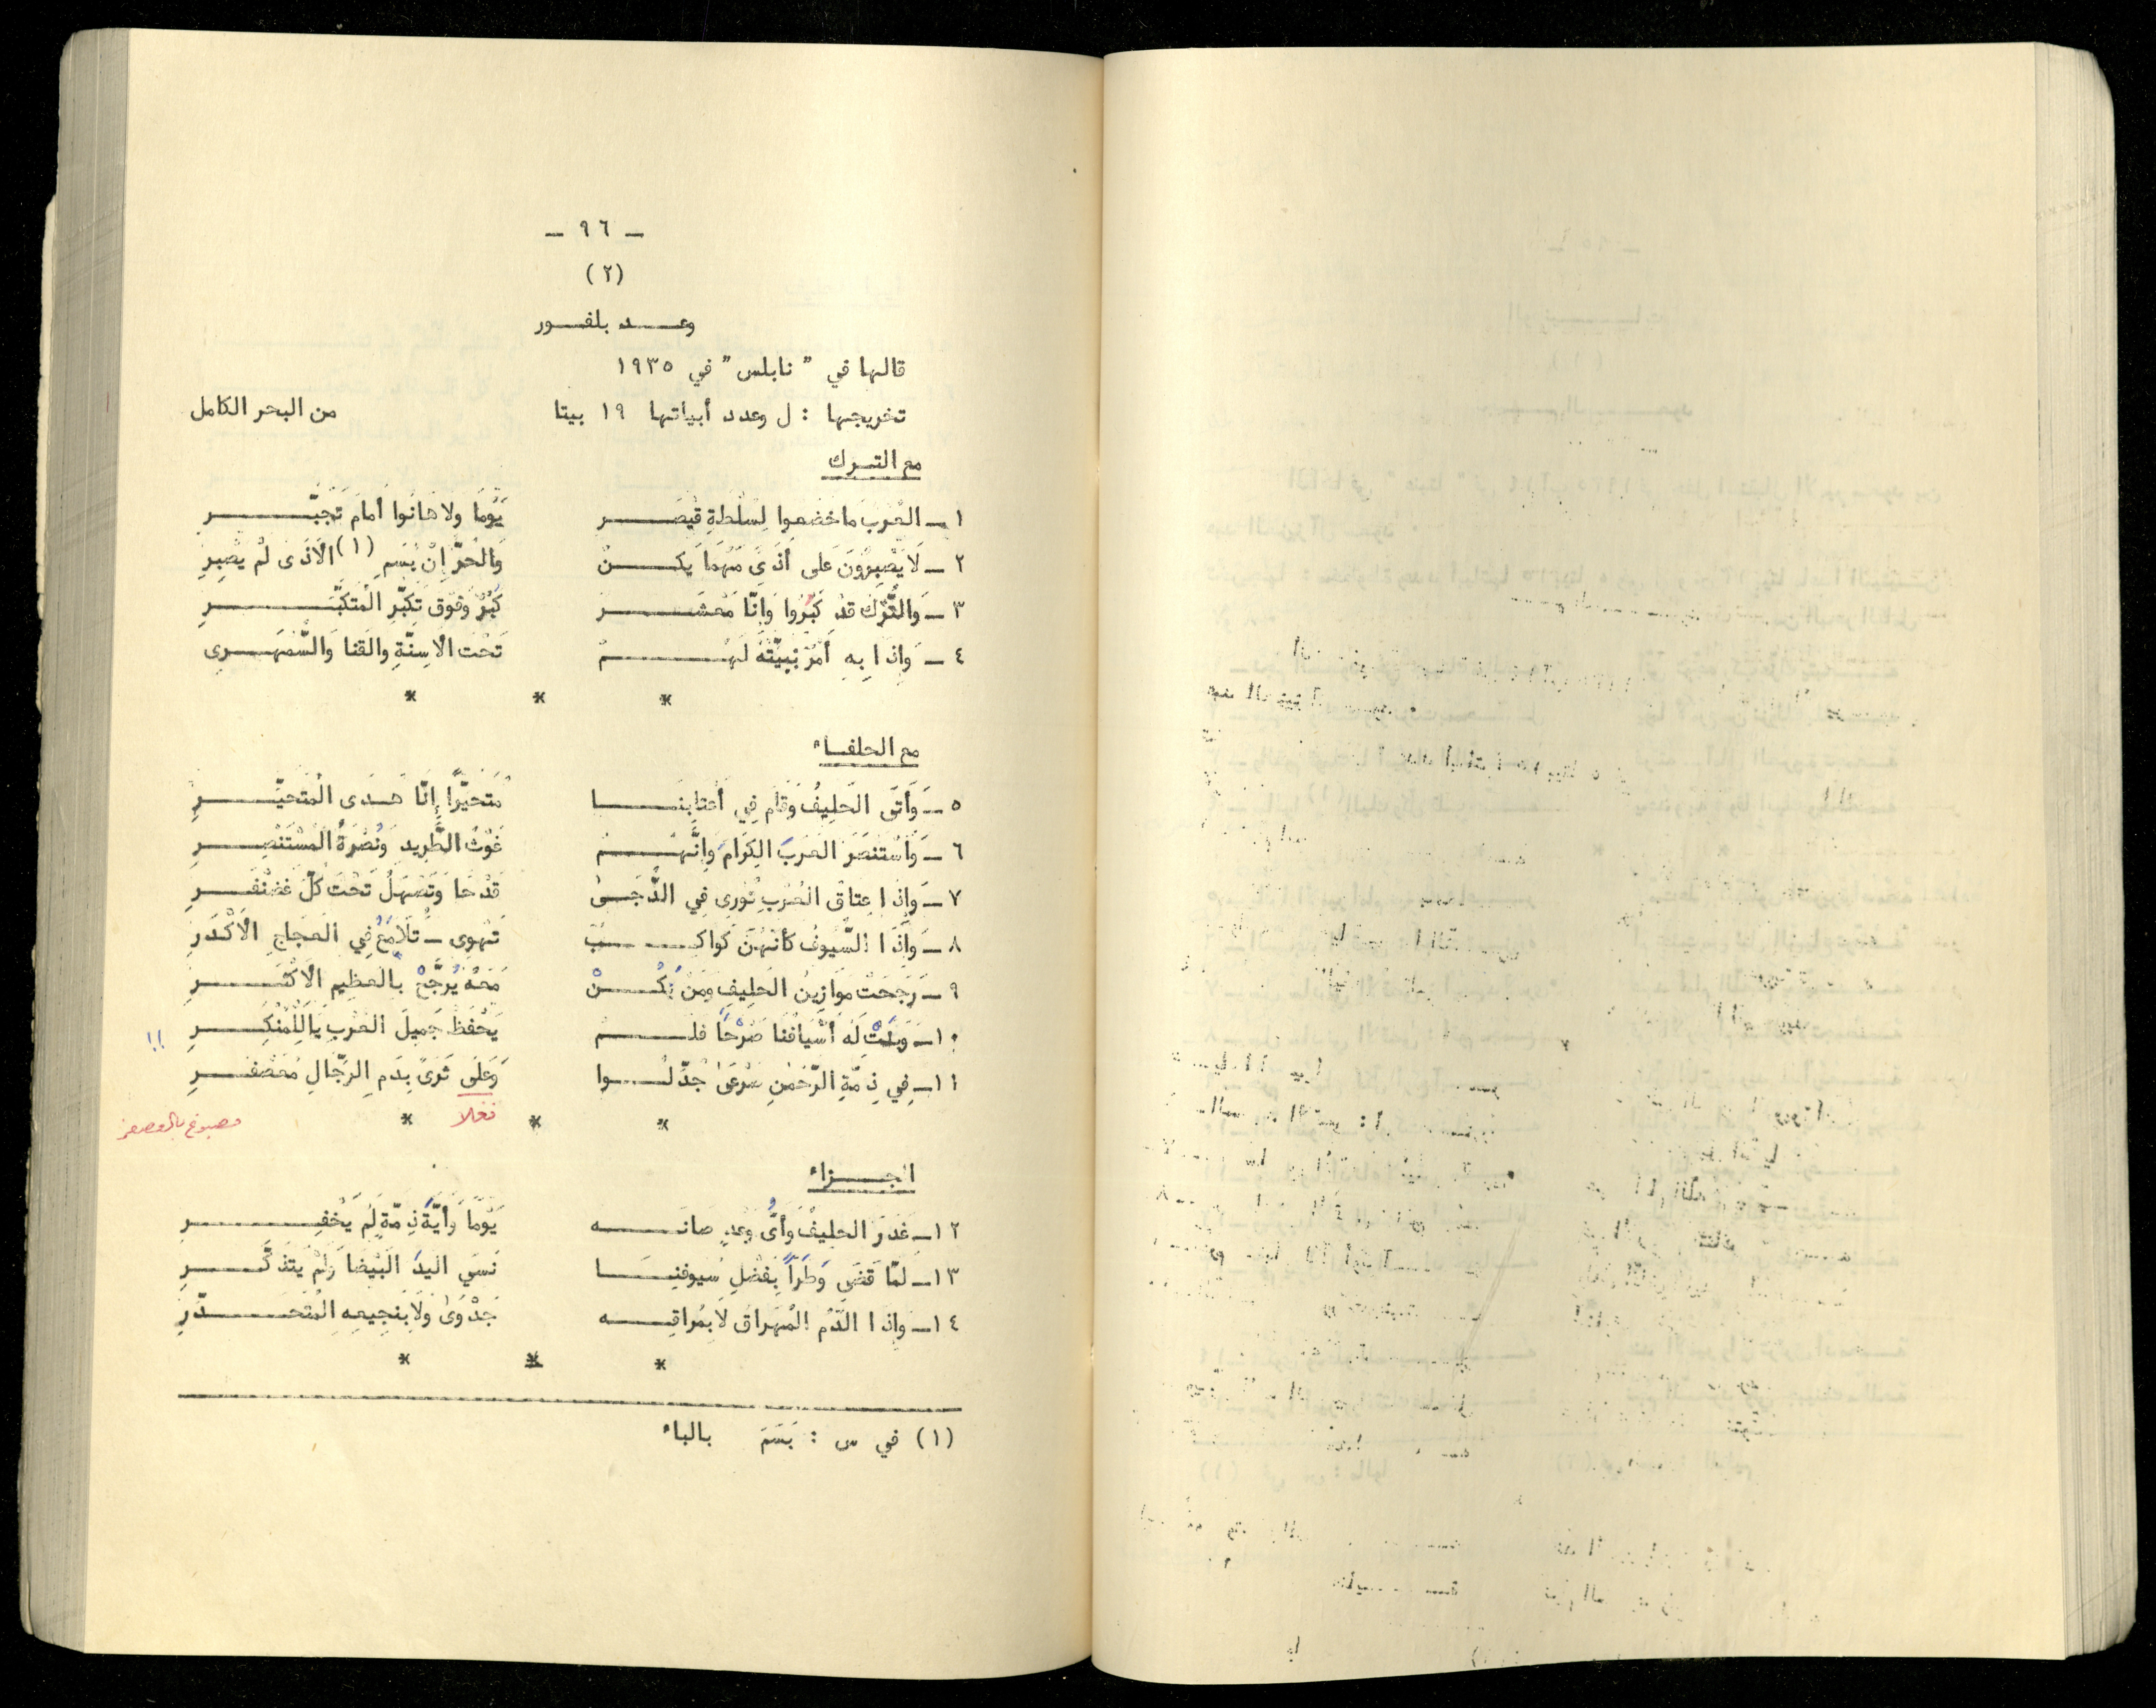 — ٩٦ —
(٢)
وعد بلفور
قالها في "نابلس" في ١٩٣٥
تخريجها : ل وعدد أبياتها ١٩ بيتا من البحر الكامل
مع الترك
١ـ العُرب ما خضعوا لِسُلْطةِ قَيْصَر يَوْماً ولا هانُوا أمامَ تَجَبُّرِ
٢ـ لَا يَصْبِرُونَ عَلى أَذىً مَهْمَا يَكُنْ وَالحُرّ إنْ يُسَمِ (١) الأذَى لمْ يصْبِرِ
٣ـ وَالتُّرْك قدْ كَبُرُوا وَإنّا مَعْشَر كُبُرٌ وَفَوْق تكَبّرِ المُتكَبِّرِ
٤ـ وَإذا بِهِ أَمْرٌ نُبِيّتُهُ لَهُمْ تَحْت الأسِنّةِ والقنا وَالسَّمْهَرِى
* * *
مع الحلفاء
٥ـ وَأتَى الحَلِيفُ وَقام فِي أعْتابِنَا مُتحيّراً إنّا هُدَى المُتحيِّرِ
٦ـ وَاسْتَنصَرَ العَرَبَ الكِرَامَ وَإنَّهُمْ غَوْث الطَّرِيدِ وَنُصْرَةُ المُسْتَنْصِرِ
٧ـ وَإذا عِتاقُ العُرْبِ تُورِى فِي الدُّجَىٰ قدْحَا وَتَصْهَلُ تَحْتَ كلّ غضَنْفَرِ
٨ـ وَإذَا السُّيوفُ كأنهُنّ كَواكِبٌ تَهْوِى ـ تَلَامَعُ فِي العَجَاجِ الأكْدَرِ
٩ـ رَجَحَتْ مَوَازِينُ الحَلِيفِ وَمَنْ نَكُنْ مَعَهُ يُرَجَّحْ بالعظِيمِ الأكْثَرِ
١٠ـ وَبَنَتْ لَه أسْيَافُنَا صَرْحَاً فَلَمْ يَحْفظْ جَمِيلَ العُرْبِ يَا لَلْمُنْكِرِ !!
١١ـ فِي ذِمّةِ الرّحْمنِ صَرْعَىٰ جُدّلُوا وَعَلى ثَرىً بِدَمِ الرِّجَالِ مُعَصْفَرِ
* * *
فعلا
مصبوغ بالعصفر
الجزاء
١٢ـ غَدَرَ الحلِيفُ وَأىُّ وَعدٍ صانَه يَوْماً وَأيّةَ ذِمّةٍ لَمْ يَخْفِرِ
١٣ـ لمّا قَضَى وَطَراً بِفَضْلِ سُيوفِنَا نَسِيَ اليَدَ البَيْضا وَلَمْ يَتَذكَّرِ
١٤ـ وَإذا الدّمُ المُهَراق لا بِمُراقِه جَدْوَىٰ وَلَا بِنَجِيعِهِ المُتَحَدِّرِ
* * *
(١) في س : بَسَمَ بالباء